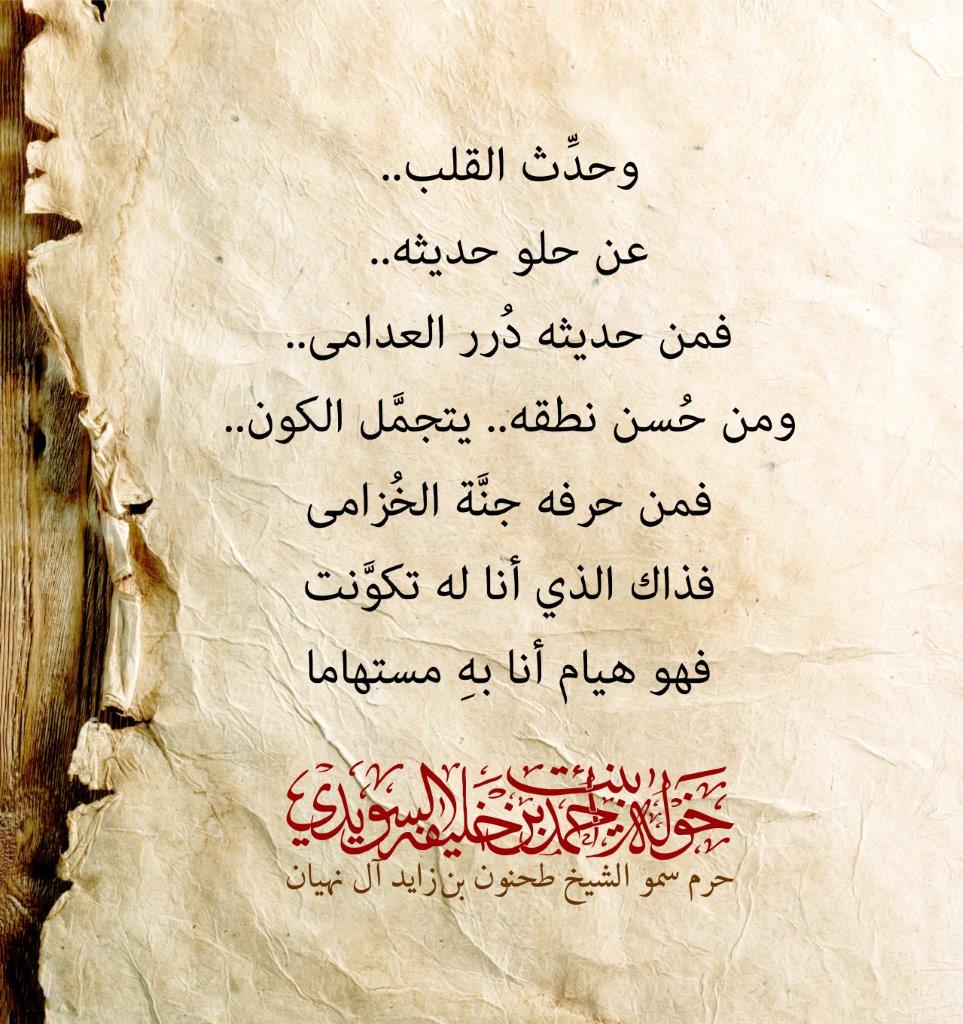 وحدِّث القلب..
عن حلو حديثه..
فمن حديثه دُرر العدامى..
ومن حُسن نطقه.. يتجمَّل الكون..
فمن حرفه جنَّة الخُزامى
فذاك الذي أنا له تكوَّنت
فهو هيام أنا بهِ مستهاما
خولة بنت أحمد بن خليفة السويدي
حرم سمو الشيخ طحنون بن زايد آل نهيان